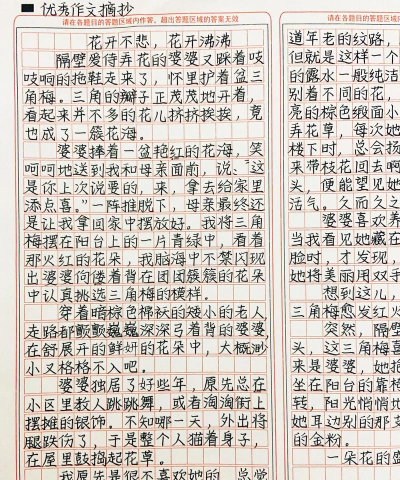 优秀作文摘抄
请在各题目的答题区域内作答，超出答题区域的答案无效
请在各题目的答题区域内作答，超
花开不悲，花开沸沸
隔壁爱侍弄花的婆婆又踩着吱
吱响的拖鞋走来了，怀里护着盆三
角梅。三角的瓣子正茂茂地开着，
看起来并不多的花儿挤挤挨挨，竟
也成了一簇花海。
婆婆捧着一盆艳红的花海，笑
呵呵地送到我和母亲面前，说、"这
是你上次说要的，来，拿去给家里
添点喜。"一阵推脱下，母亲最终还
是让我拿回家中摆放好。我将三角
梅摆在阳台上的一片青绿中，看着
那火红的花朵，我脑海中不禁闪现
出婆婆佝偻着背在团团簇簇的花朵
中认真挑选三角梅的模样。
穿着暗棕色棉袄的矮小的老人，
走路都颤颤巍巍深深弓着背的婆婆，
在舒展开的鲜妍的花朵中，大概渺
小又格格不入吧。
婆婆独居了好些年，原先总在
小区里教人跳跳舞，或者淘淘街上
摆摊的银饰。不知哪一天，外出将
腿跌伤了，于是整个人猫着身子，
在屋里鼓捣起花草。
我原先是很不喜欢她的，总觉
道年老的纹路，
但就是这样一个
的露水一般纯洁
别着不同的花，
亮的棕色缎面小
弄花草，每次她
楼下时，总会扬
来带枝花回去呵
头，便能望见她
活气。久而久之
婆婆喜欢养
当我看见她藏在
脸时，才发现，
她将美丽用双手
想到这儿，
三角梅愈发红火
突然，隔壁
头，这三角梅喜
来是婆婆，她抱
坐在阳台的靠椅
转，阳光悄悄地
她耳边别的那支
的金粉。
一朵花的盛